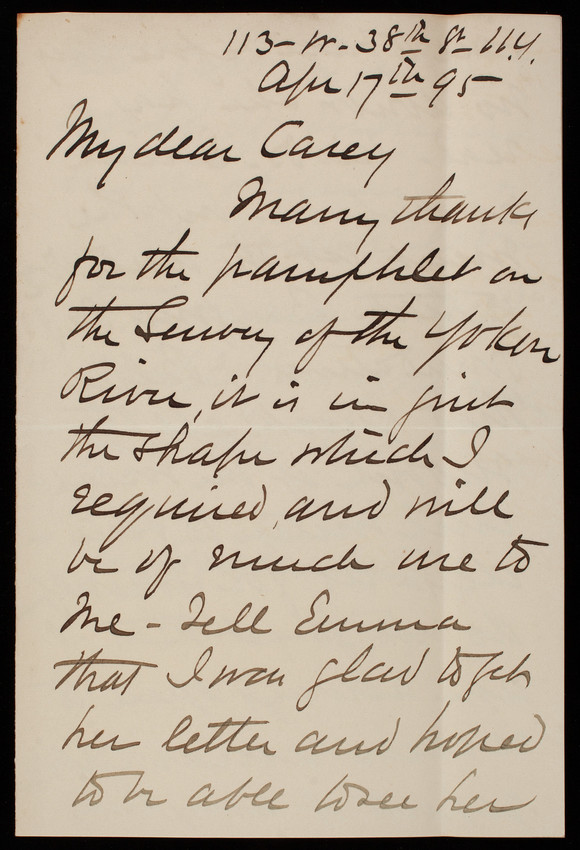 113-W-38th St N.Y.
Apr 17th 95
My dear Casey
Many thanks
for the pamphlet on
the Survey of the Yokon
River, it is in just
the shape which I
required, and will
be of much use to
me - Tell Emma
that I was glad to get
her letter and hoped
to be able to see her